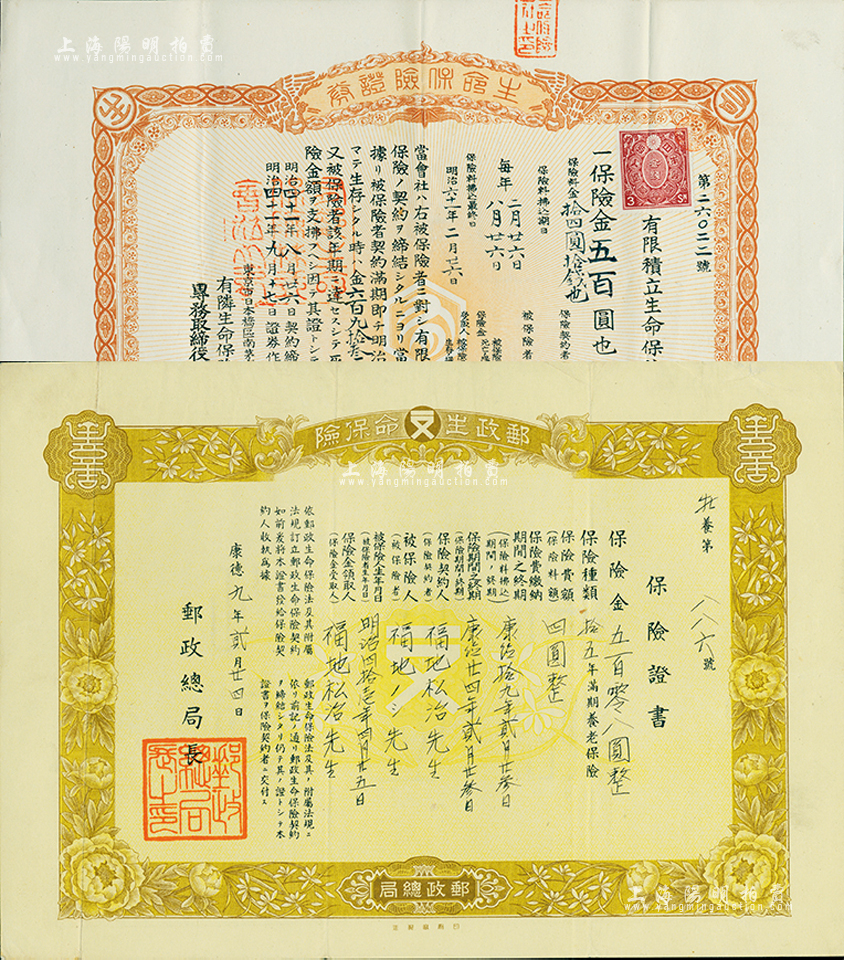 上海陽明拍賣
www.yangmingauction.com
上海陽明拍賣
www.yangmingauction.com
生命保險證券
第二六〇二二號
3 Sn
有限積立生命保
一保險金五百圓也
保險料金拾四圓拾錢也
保險契約者
保險料拂込期日
每年二月廿六日
八月廿六日
被保險者
保險料拂込最終日
明治六十一年二月廿六日
當會社ハ右被保險者ニ對シ有限
保險ノ契約ヲ締結シタルニヨリ當
據リ被保險者契約滿期即チ明治
マテ生存シタル時ハ金六百九拾
又被保險者該年期ニ達セスシテ
險金額ヲ支拂フヘシ因テ其證トシテ
明治四十一年八月廿六日契約締
明治四十一年九月十七日證券作
東京市日本橋區南茅
有隣生命保
專務取締役
郵政生命保險
上海陽明拍賣
www.yangmingauction.com
牡養第八八六號
保險證書
保險金五百零八圓整
保險種類 拾五年滿期養老保險
保險費額 四圓整
(保險料額)
保險費繳納
期間之終期 康德拾九年貳月廿參日
(保險料拂込
期間ノ終期)
保險期間之終期 康德廿四年貳月廿參日
(保險期間ノ終期)
保險契約人 福地松治先生
(保險契約者)
被保險人 福地ノシ先生
(被保險者)
被保險人生年月日 明治四拾壱年四月廿五日
(被保險者生年月日)
保險金領取人 福地松治先生
(保險金受取人)
依郵政生命保險法及其附屬
法規訂立郵政生命保險契約
如前爰將本證書發給保險契
約人收執爲據
郵政生命保險法及其ノ附屬法規ニ
依リ前記ノ通リ郵政生命保險契約
ヲ締結シタリ仍テ其ノ證トシテ本
證書ヲ保險契約者ニ交付ス
康德九年貳月廿四日
郵政總局長
郵政總局
上海陽明拍賣
www.yangmingauction.com